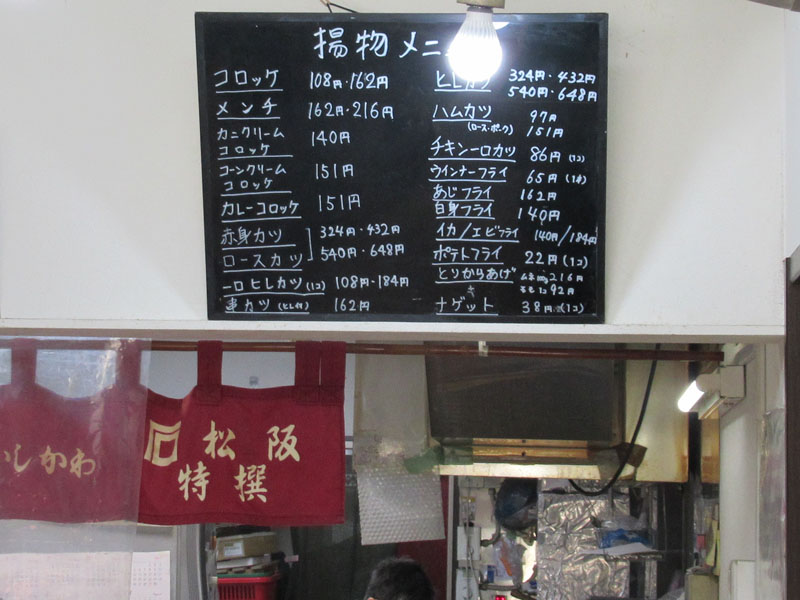 揚物メニ
コロッケ 108円・162円
メンチ 162円・216円
カニクリーム
コロッケ 140円
コーンクリーム
コロッケ 151円
カレーコロッケ 151円
赤身カツ 324円・432円
ロースカツ 540円・648円
一口ヒレカツ(1コ) 108円・184円
串カツ(ヒレ付) 162円
ヒレカツ 324円・432円
540円・648円
ハムカツ 97円
(ロース・ポーク) 151円
チキン一口カツ 86円(1コ)
ウインナーフライ 65円(1本)
あじフライ 162円
白身フライ 140円
イカ/エビフライ 140円/184円
ポテトフライ 22円(1コ)
とりからあげ 216円
92円
ナゲット 38円(1コ)
いしかわ
松阪
特撰